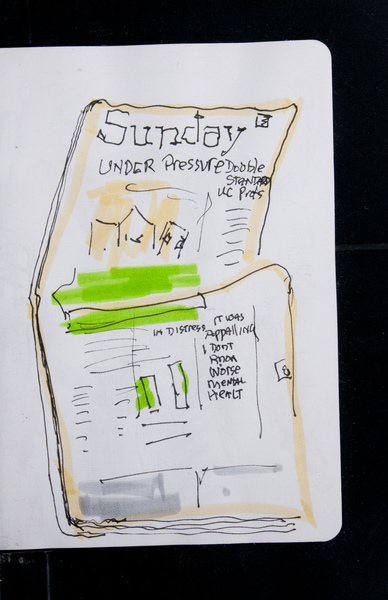 Sunday
UNDER Pressure
Double
STANDARD
UC Profs
IN DISTRESS
IT WAS
APPALLING
I DON'T
KNOW
WORSE
MENTAL
HEALT